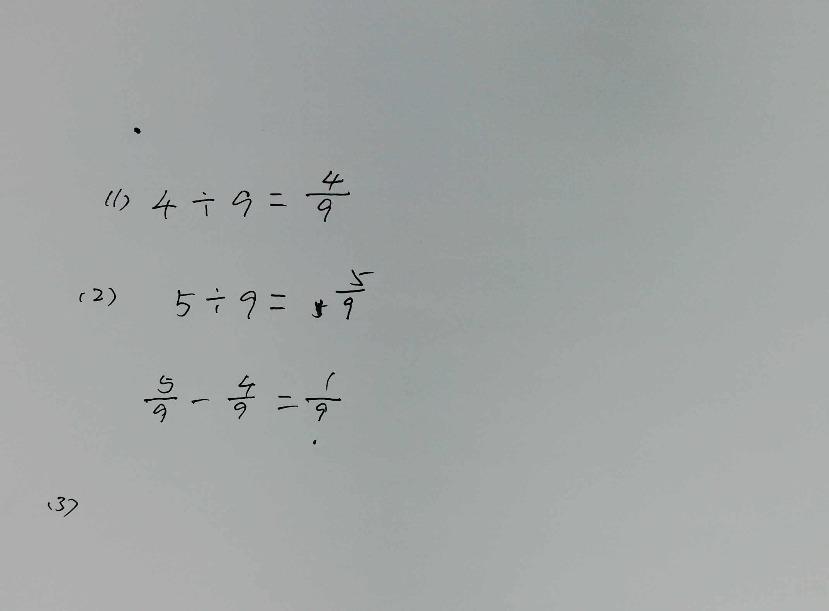 (1) 4 ÷ 9 = 4/9
(2) 5 ÷ 9 = 5/9
5/9 - 4/9 = 1/9
(3)